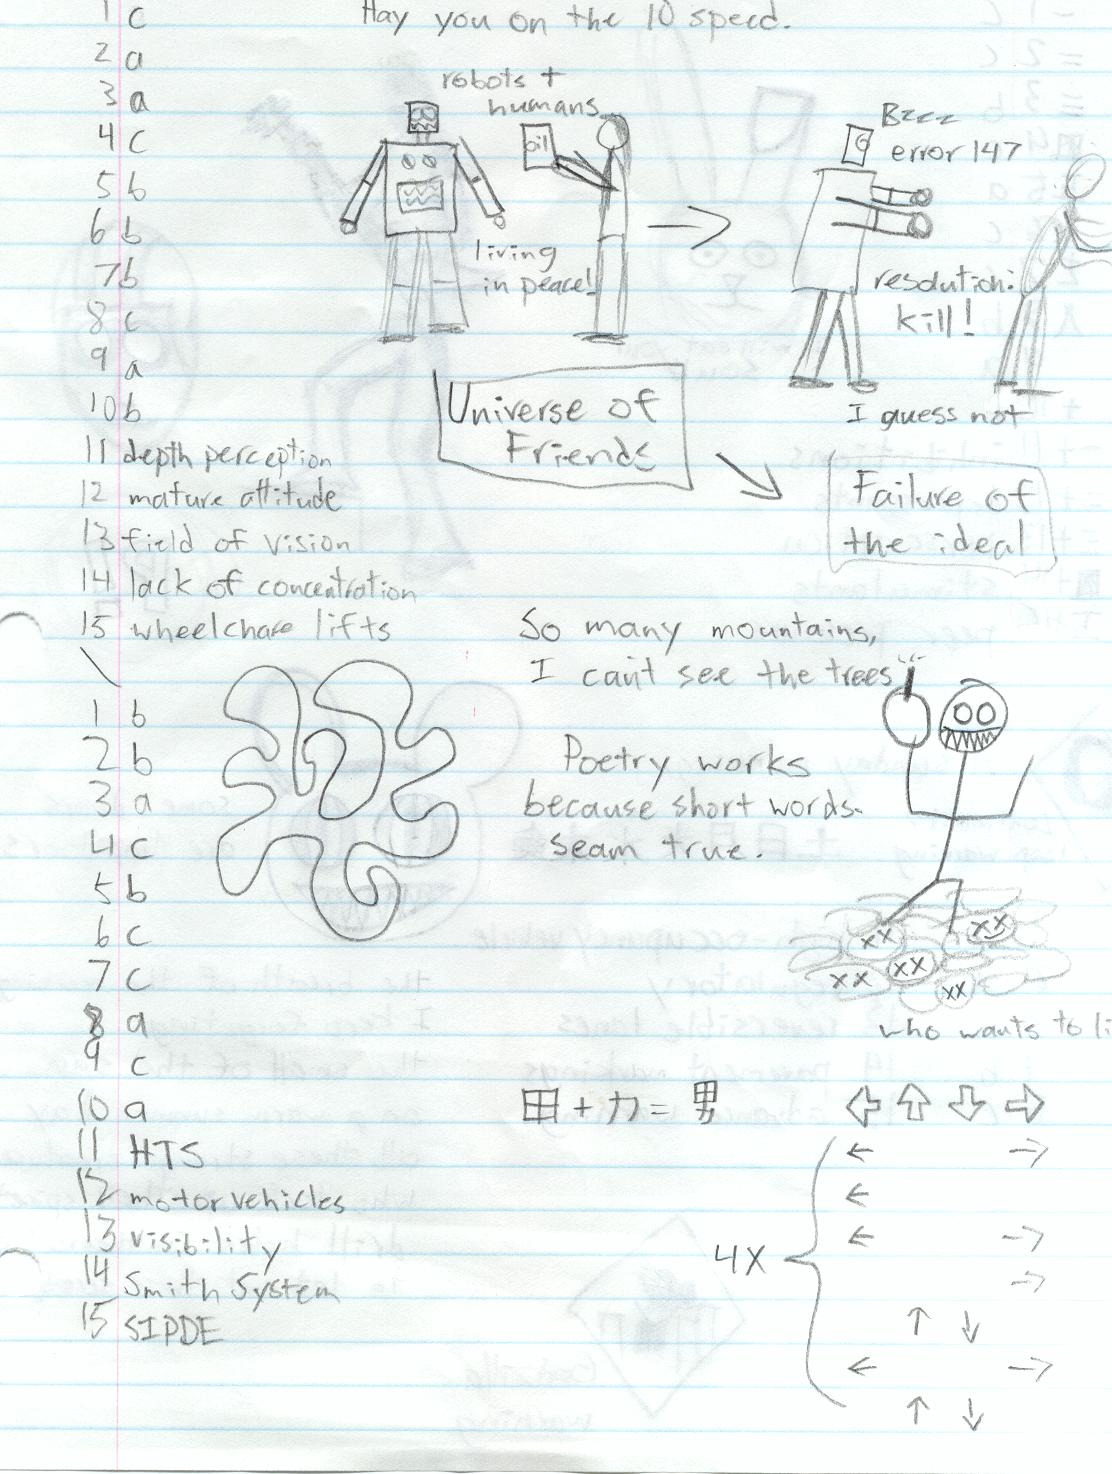 Hay you on the 10 speed.
1 c
2 a
3 a
4 c
5 b
6 b
7 b
8 c
9 a
10 b
11 depth perception
12 mature attitude
13 field of vision
14 lack of concentration
15 wheelchare lifts
robots +
humans
oil
living
in peace!
Bzzz
error 147
resolution:
kill!
I guess not
Universe of
Friends
Failure of
the ideal
So many mountains,
I can't see the trees
Poetry works
because short words
seam true.
xx
xx
xx
xx
xx
who wants to li
1 b
2 b
3 a
4 c
5 b
6 c
7 c
8 a
9 c
10 a
11 HTS
12 motor vehicles
13 visibility
14 Smith System
15 SIPDE
田 + 力 = 男
⇦ ⇧ ⇩ ⇨
← →
←
← →
→
↑ ↓
← →
↑ ↓
4X